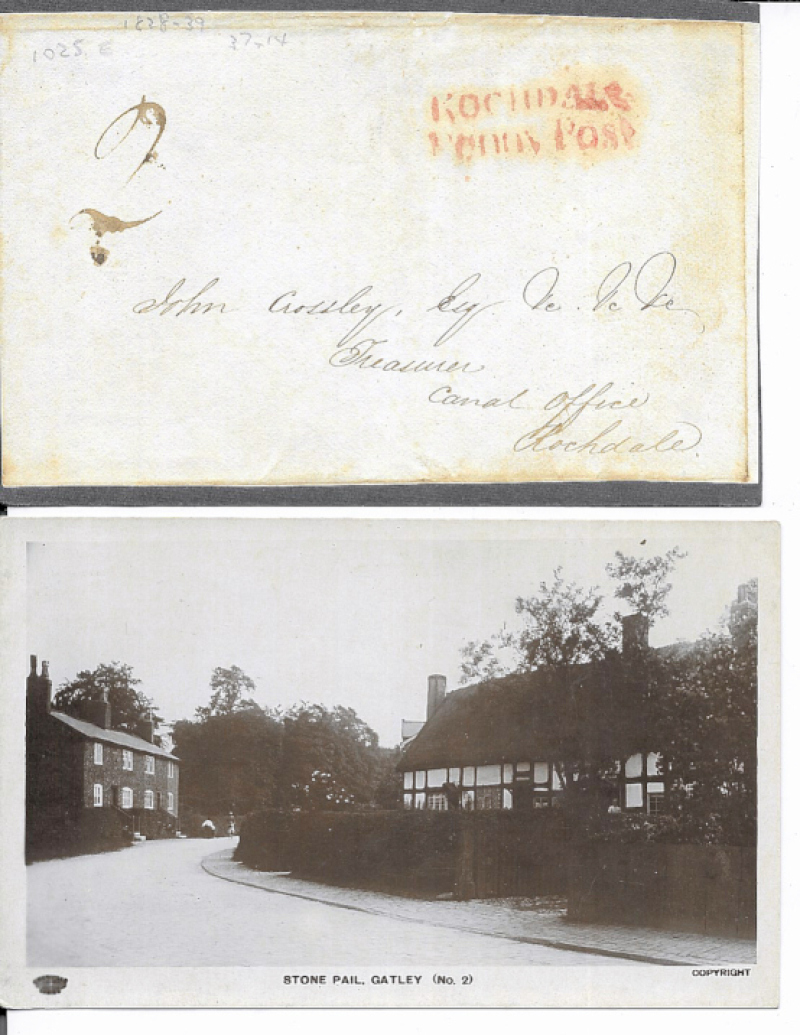 1828-39
1025. E 37-14
2
ROCHDALE
Penny Post
John Crossley, Esq &c. &c &c
Treasurer
Canal Office
Rochdale.
STONE PAIL, GATLEY (No. 2)
COPYRIGHT